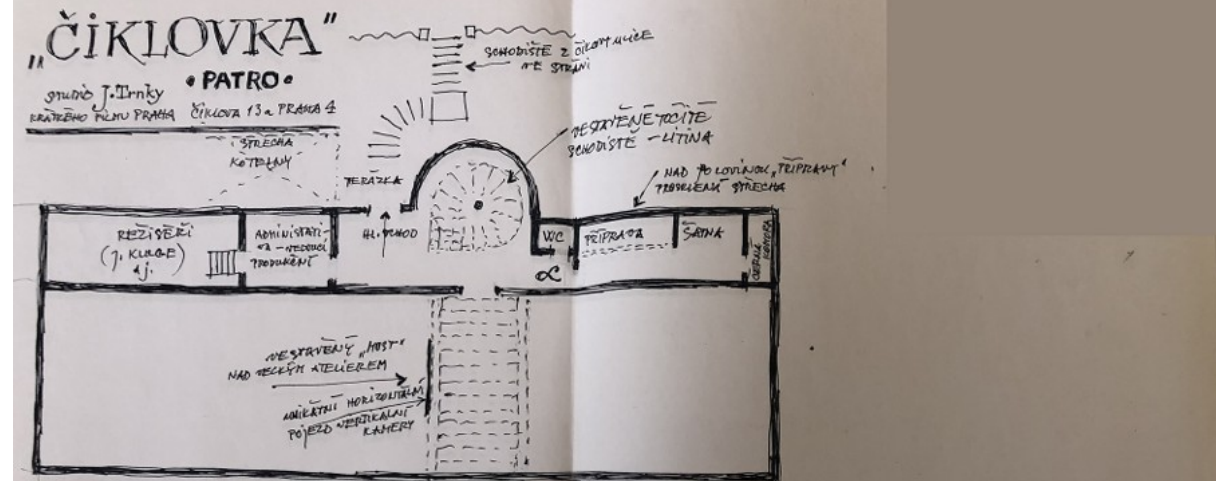 „ČIKLOVKA"
• PATRO •
STUDIO J. Trnky
KRÁTKÉHO FILMU PRAHA ČIKLOVA 13a PRAHA 4
SCHODIŠTĚ Z ČIKLOVY ULICE
VE STRÁNI
STŘECHA
KOTELNY
VESTAVĚNÉ TOČITÉ
SCHODIŠTĚ - LITINA
TERÁZKA
NAD POLOVINOU „PŘÍPRAVY"
PROSKLENÁ STŘECHA
REŽISÉŘI
(J. KLUGE)
aj.
ADMINISTRATI-
VA - VEDOUCÍ
PRODUKČNÍ
HL. VCHOD
WC
PŘÍPRAVA
ŠATNA
ČERNÁ
KOMORA
VESTAVĚNÝ „MOST"
NAD VELKÝM ATELIEREM
UNIKÁTNÍ HORIZONTÁLNÍ
POJEZD VERTIKÁLNÍ
KAMERY